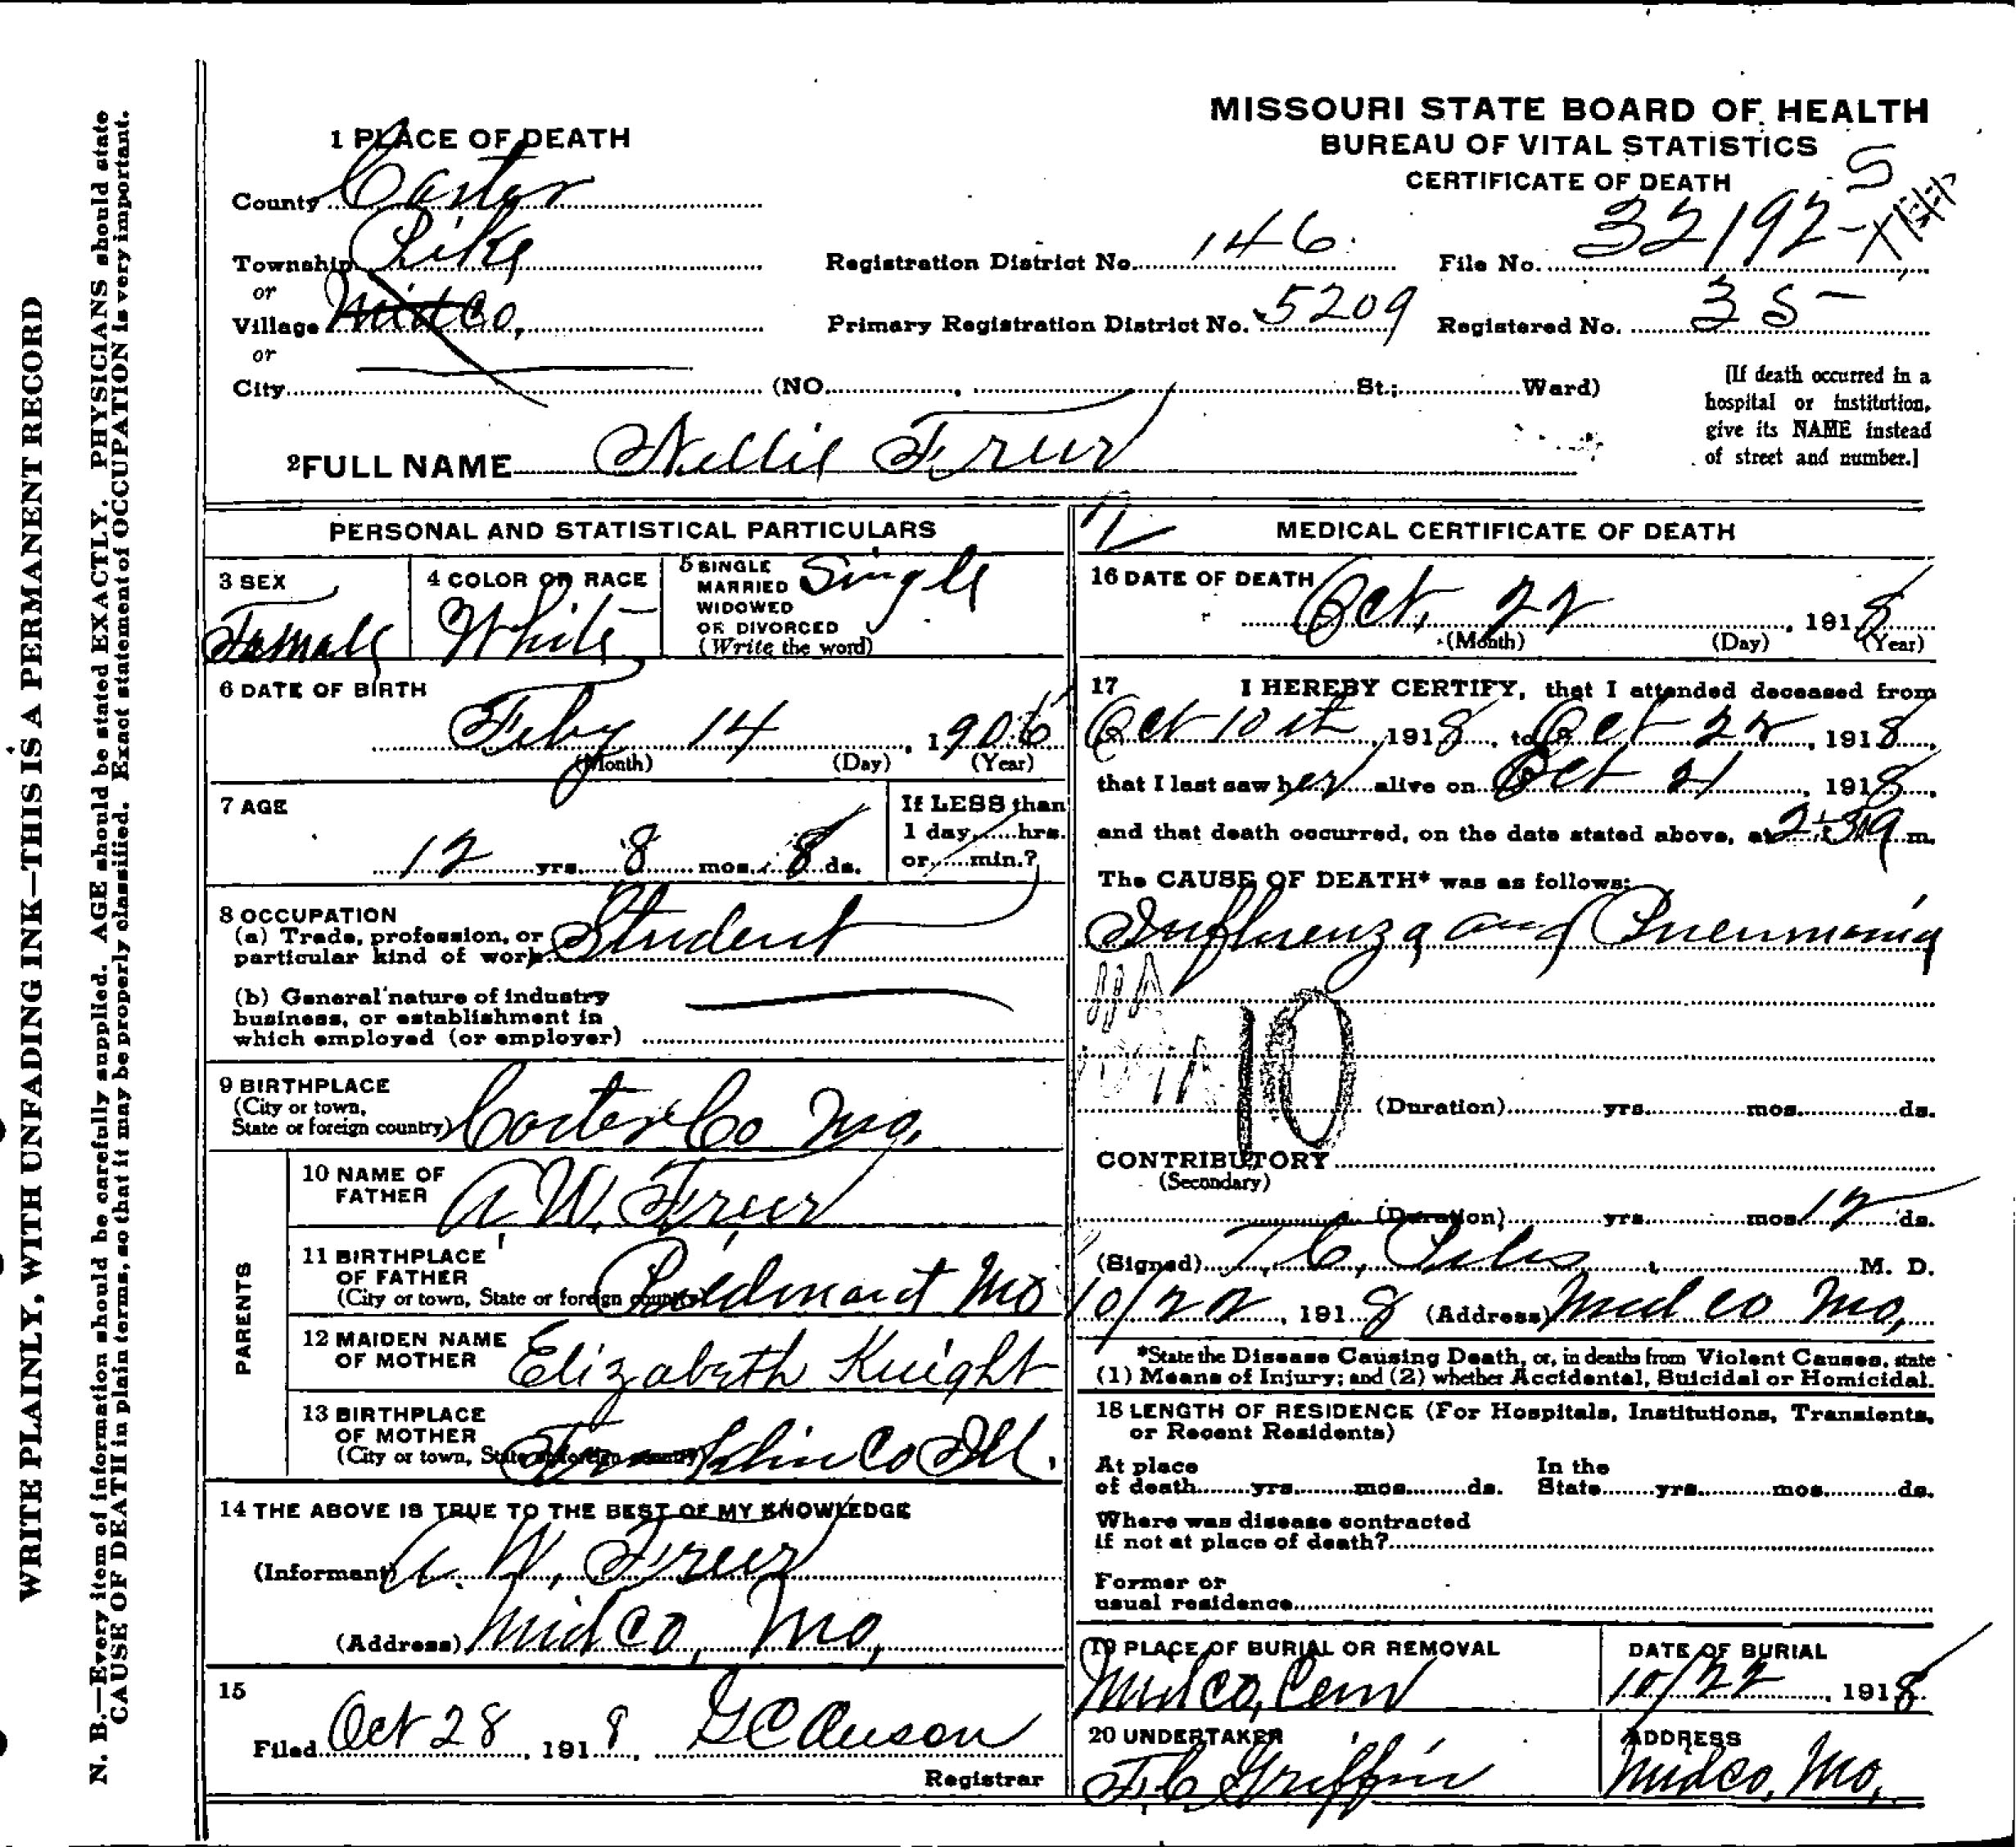 WRITE PLAINLY, WITH UNFADING INK—THIS IS A PERMANENT RECORD
N. B.—Every item of information should be carefully supplied. AGE should be stated EXACTLY. PHYSICIANS should state
CAUSE OF DEATH in plain terms, so that it may be properly classified. Exact statement of OCCUPATION is very important.
MISSOURI STATE BOARD OF HEALTH
BUREAU OF VITAL STATISTICS
CERTIFICATE OF DEATH
1 PLACE OF DEATH
County Carter
Township Pike
or
Village Midco,
or
City (NO. , St.; Ward)
Registration District No. 146
File No. 32192
Primary Registration District No. 5209
Registered No. 35
[If death occurred in a
hospital or institution,
give its NAME instead
of street and number.]
2 FULL NAME Nellie Freer
PERSONAL AND STATISTICAL PARTICULARS
3 SEX
Female
4 COLOR OR RACE
White
5 SINGLE
MARRIED
WIDOWED
OR DIVORCED
(Write the word)
Single
6 DATE OF BIRTH
Feby 14, 1906
(Month) (Day) (Year)
7 AGE
12 yrs. 8 mos. 8 ds.
If LESS than
1 day, hrs.
or min.?
8 OCCUPATION
(a) Trade, profession, or
particular kind of work Student
(b) General nature of industry
business, or establishment in
which employed (or employer)
9 BIRTHPLACE
(City or town,
State or foreign country) Carter Co Mo.
PARENTS
10 NAME OF
FATHER A W. Freer
11 BIRTHPLACE
OF FATHER
(City or town, State or foreign country) Piedmont Mo
12 MAIDEN NAME
OF MOTHER Elizabeth Knight
13 BIRTHPLACE
OF MOTHER
(City or town, State or foreign country) Franklin Co Ill.
14 THE ABOVE IS TRUE TO THE BEST OF MY KNOWLEDGE
(Informant) A. W. Freer
(Address) Midco, Mo,
15
Filed Oct 28, 1918,
Registrar
MEDICAL CERTIFICATE OF DEATH
16 DATE OF DEATH
Oct. 22, 1918
(Month) (Day) (Year)
17 I HEREBY CERTIFY, that I attended deceased from
Oct 10th, 1918, to Oct 22, 1918,
that I last saw her alive on Oct 21, 1918,
and that death occurred, on the date stated above, at m.
The CAUSE OF DEATH* was as follows:
Influenza and Pneumonia
10
(Duration) yrs. mos. ds.
CONTRIBUTORY
(Secondary)
(Duration) yrs. mos. 12 ds.
(Signed) T. C. M. D.
10/22, 1918 (Address) Midco Mo,
*State the Disease Causing Death, or, in deaths from Violent Causes, state
(1) Means of Injury; and (2) whether Accidental, Suicidal or Homicidal.
18 LENGTH OF RESIDENCE (For Hospitals, Institutions, Transients,
or Recent Residents)
At place
of death yrs. mos. ds.
In the
State yrs. mos. ds.
Where was disease contracted
if not at place of death?
Former or
usual residence
19 PLACE OF BURIAL OR REMOVAL
Midco, Cem
DATE OF BURIAL
10/22, 1918
20 UNDERTAKER
F. C Griffin
ADDRESS
Midco, Mo,